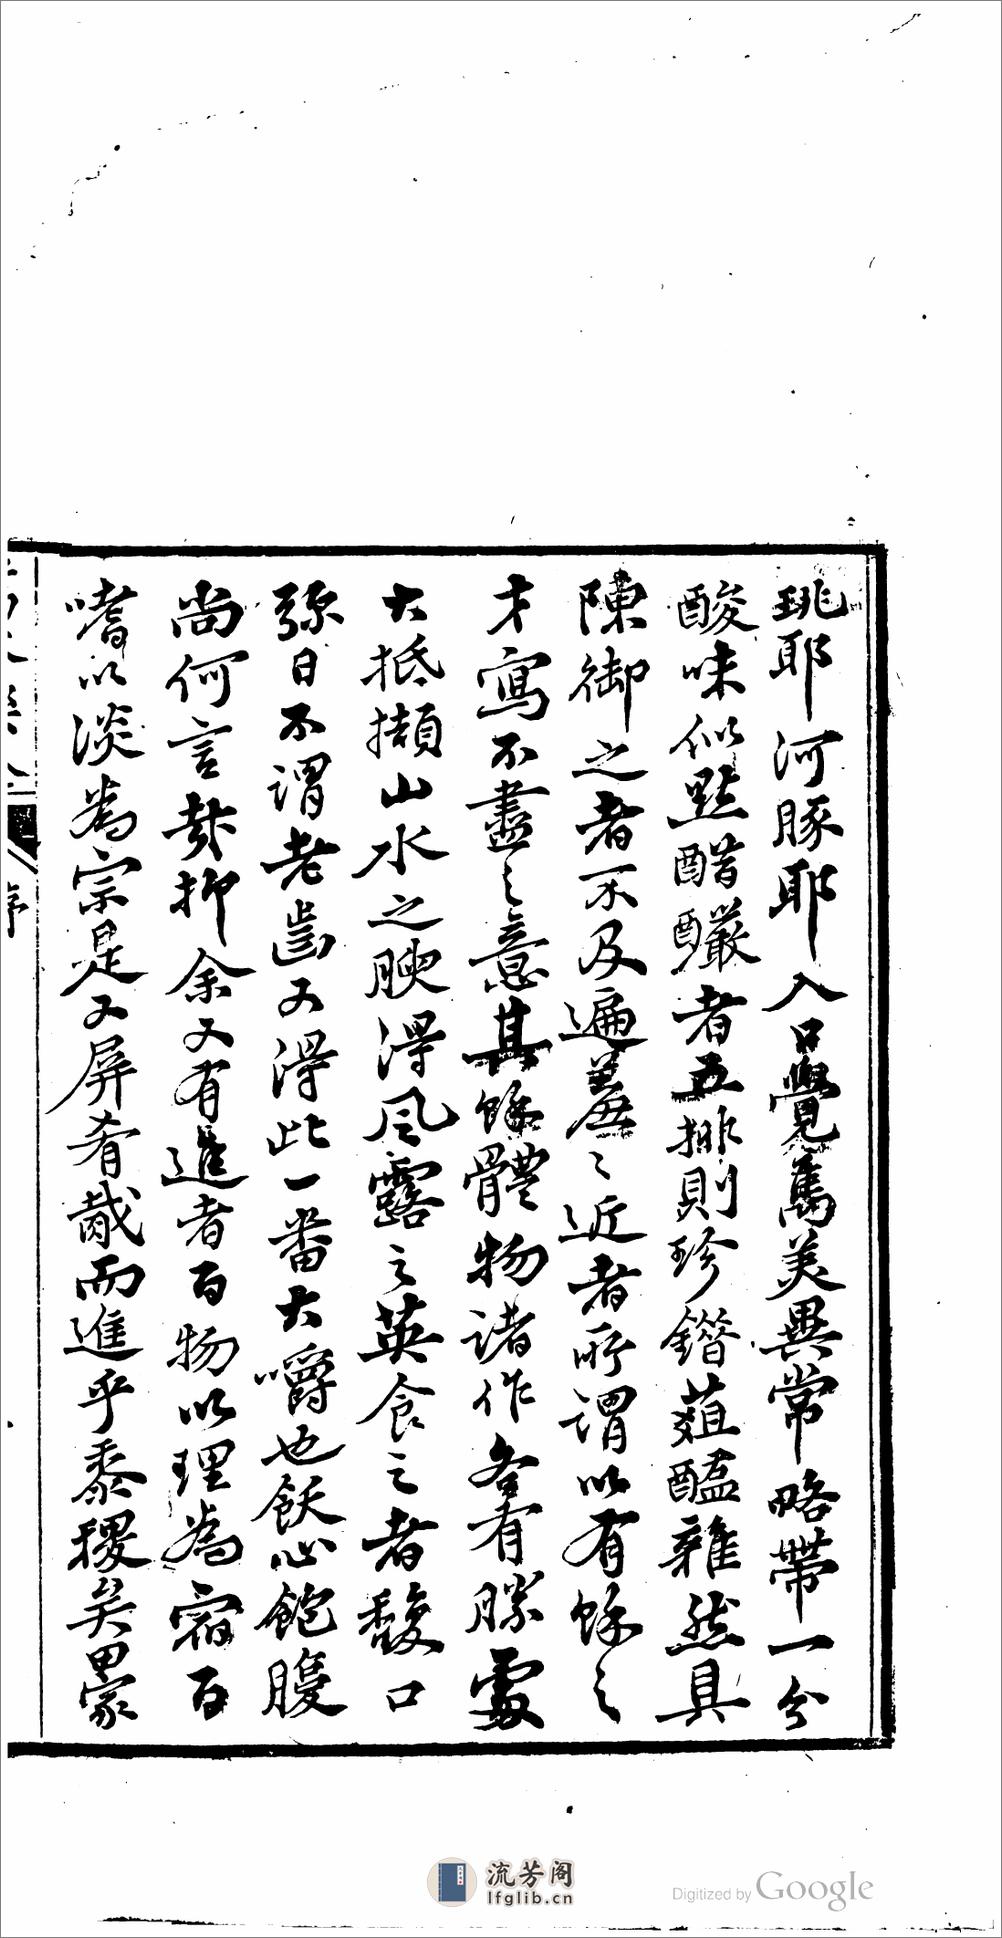 珧耶河豚耶入口覺雋美異常略帶一分
酸味似點醋釅者五排則珍錯葅醢雜然具
陳御之者不及遍羞〻近者所謂以有餘之
才寫不盡之意其餘體物諸作各有勝處
大抵擷山水之腴得風露之英食之者馥口
弥日不謂老齒又得此一番大嚼也飫心飽腹
尚何言哉抑余又有進者百物以理為宿百
嗜以淡為宗是又屏肴胾而進乎黍稷矣畏
序
流芳阁
lfglib.cn
Digitized by Google